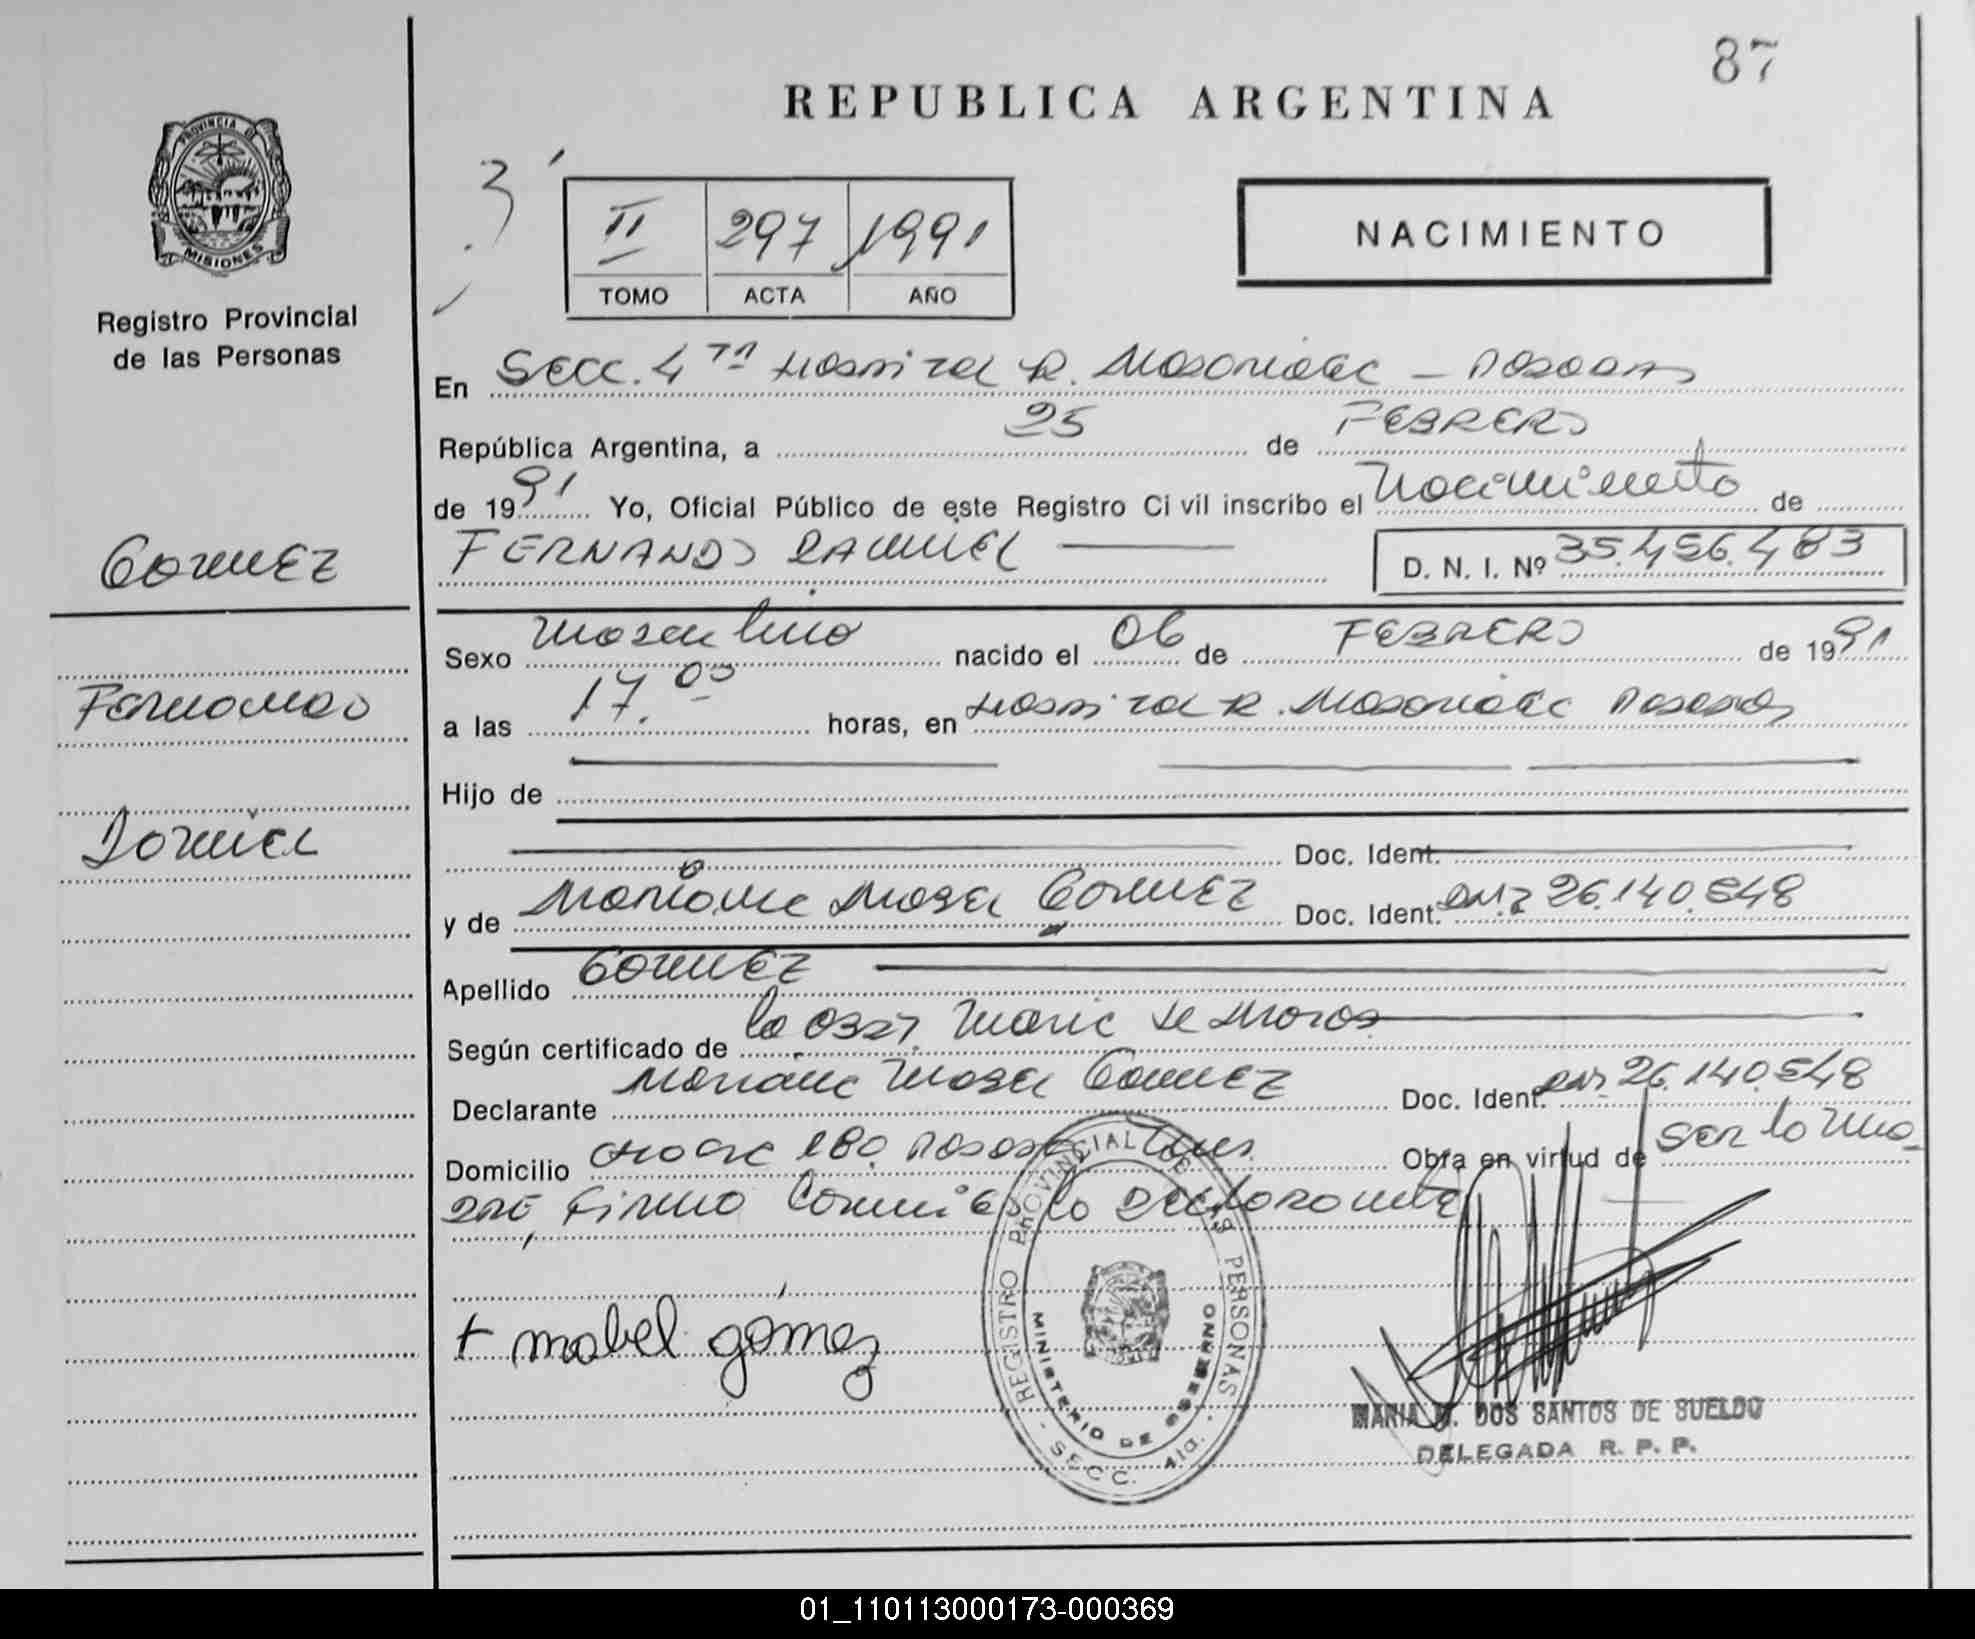 87
REPUBLICA ARGENTINA
PROVINCIA DE
MISIONES
Registro Provincial
de las Personas
3
II 297 1991
TOMO ACTA AÑO
NACIMIENTO
En Secc. 4ta Hospital R. Madariaga - Posadas
República Argentina, a 25 de FEBRERO
de 1991 Yo, Oficial Público de este Registro Civil inscribo el Nacimiento de
FERNANDO DANIEL D. N. I. Nº 35.456.483
GOMEZ
Fernando
Daniel
Sexo masculino nacido el 06 de FEBRERO de 1991
a las 17.00 horas, en Hospital R. Madariaga Posadas
Hijo de
Doc. Ident.
y de Mabel GOMEZ Doc. Ident. DNI 26.140.548
Apellido GOMEZ
Según certificado de la Obst. Maria de
Declarante Mabel GOMEZ Doc. Ident. DNI 26.140.548
Domicilio 180 Posadas Obra en virtud de ser la ma-
dre, firma conmigo la declarante
+ mabel gómez
REGISTRO PROVINCIAL DE LAS PERSONAS
MINISTERIO DE GOBIERNO
- SECC. 4ta. -
MARIA DOS SANTOS DE SUELDO
DELEGADA R. P. P.
01_110113000173-000369